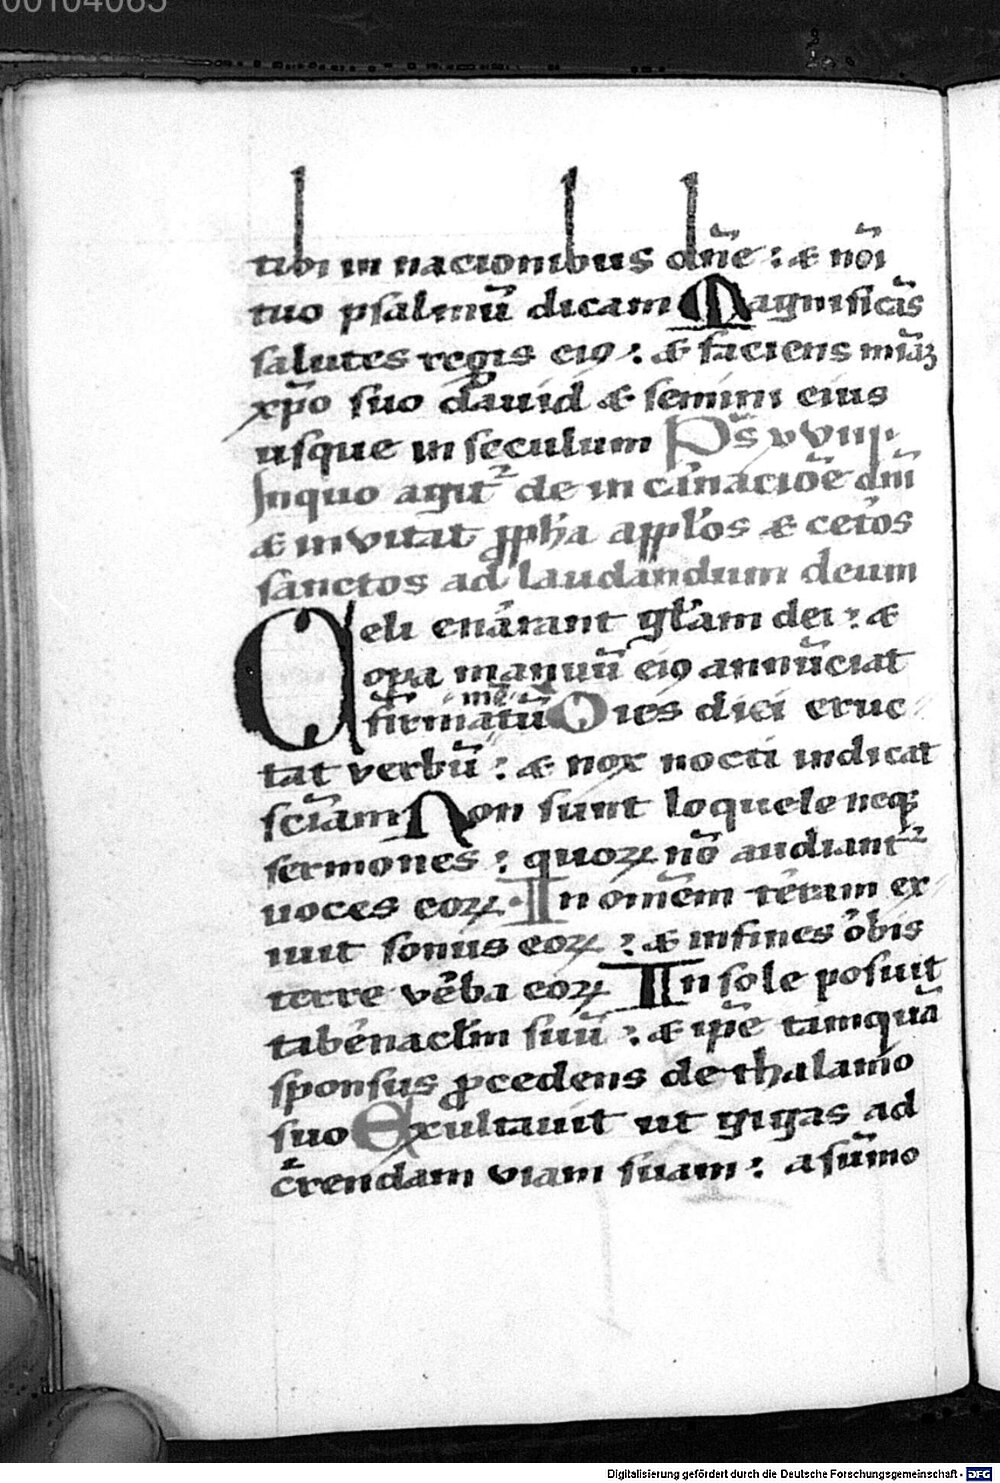 00104065
tibi in nacionibus dn̄e : & nōi
tuo psalmū dicam Magnificās
salutes regis eiꝯ : & faciens mīaꝫ
xp̄o suo dauid & semini eius
usque in seculum Ps̄ xviii
Inquo agit᷑ de incarnacioē dn̄i
& invitat ꝓph̄a app̄los & cet̄os
sanctos ad laudandum deum
Celi enarrant gl̄am dei : &
opa manuū eiꝯ annūciat
firmamētū Dies diei eruc
tat verbū : & nox nocti indicat
scīam Non sunt loquele neqꝫ
sermones : quoꝝ nō audiant᷑
uoces eoꝝ . In omēm t̄ram ex
iuit sonus eoꝝ : & infines orbis
terre v̄ba eoꝝ In sole posuit
tab̄nacl̄m suū : & ip̄e tamquā
sponsus ꝓcedens de thalamo
suo Exultauit ut gigas ad
c̄rendam viam suam : asūmo
Digitalisierung gefördert durch die Deutsche Forschungsgemeinschaft - DFG